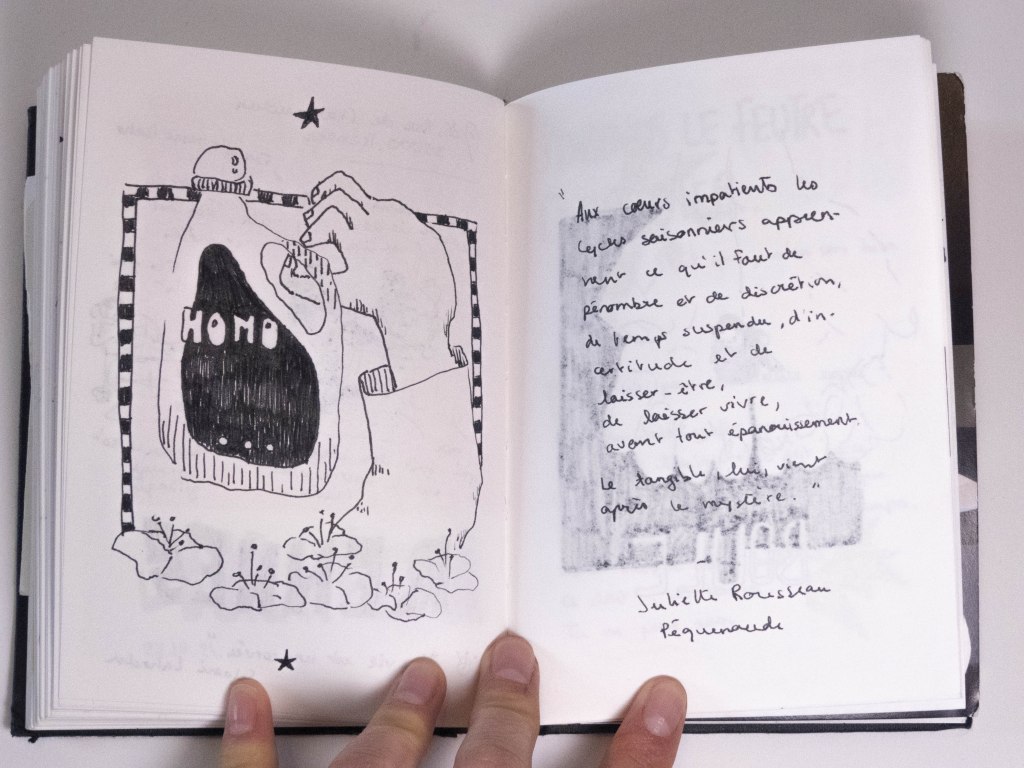 HOMO
"Aux cœurs impatients les
cycles saisonniers appren-
nent ce qu'il faut de
pénombre et de discrétion,
de temps suspendu, d'in-
certitude et de
laisser-être,
de laisser vivre,
avant tout épanouissement.
Le tangible, lui, vient
après le mystère."
Juliette Rousseau
Péquenaude